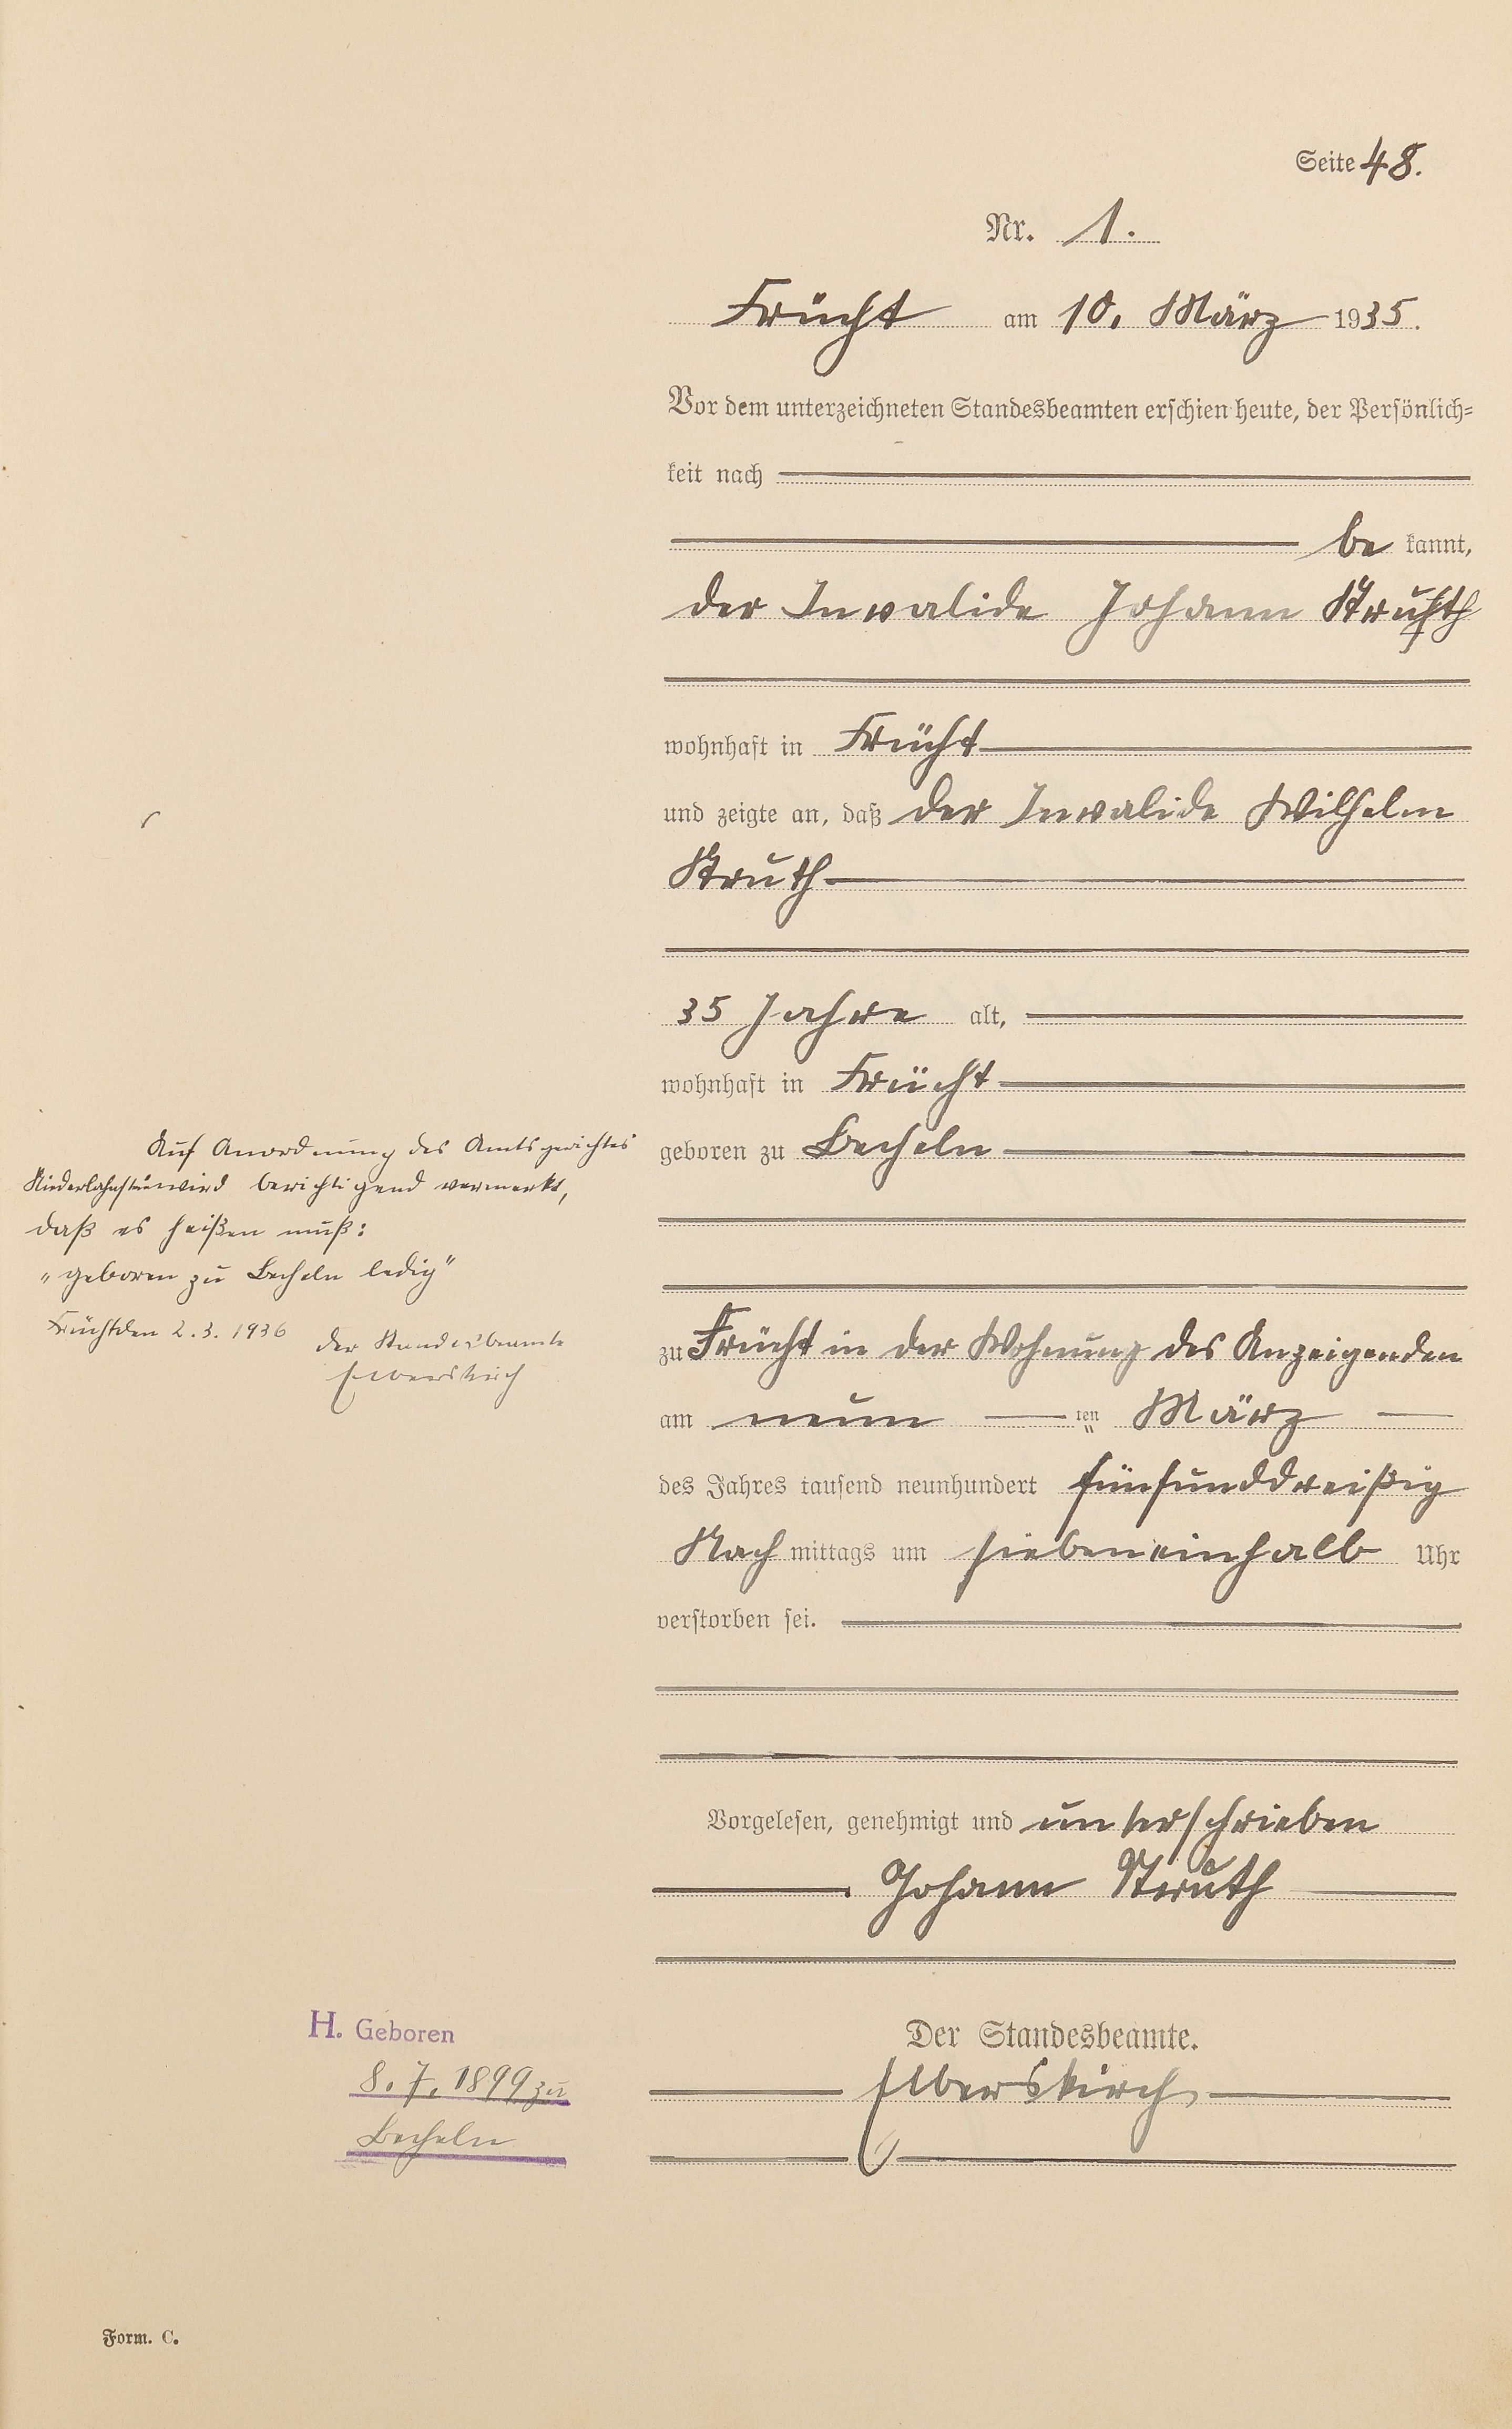 Seite 48.
Nr. 1.
Frücht am 10. März 1935.
Vor dem unterzeichneten Standesbeamten erschien heute, der Persönlich=
keit nach
be kannt,
der Invalide Johann Struth
wohnhaft in Frücht
und zeigte an, daß der Invalide Wilhelm
Struth
35 Jahre alt,
wohnhaft in Frücht
geboren zu Becheln
Auf Anordnung des Amtsgerichtes
Niederlahnstein wird berichtigend vermerkt,
daß es heißen muß:
„geboren zu Becheln ledig"
Frücht den 2.3.1936 der Standesbeamte
Elberskirch
zu Frücht in der Wohnung des Anzeigenden
am neun ten März
des Jahres tausend neunhundert fünfunddreißig
Nach mittags um siebeneinhalb Uhr
verstorben sei.
Vorgelesen, genehmigt und unterschrieben
Johann Struth
Der Standesbeamte.
Elberskirch
H. Geboren
8.7.1899 zu
Becheln
Form. C.